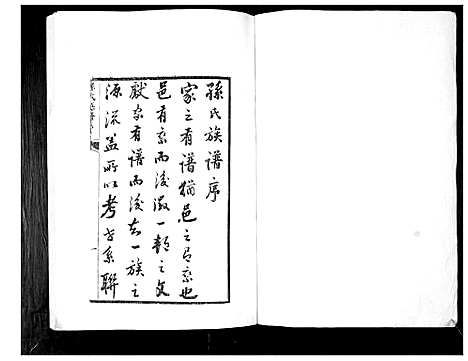 孫氏族譜序
家之有譜猶邑之有乘也
邑有乘而後徵一郡之文
獻家有譜而後知一族之
源流蓋所以考世系聯